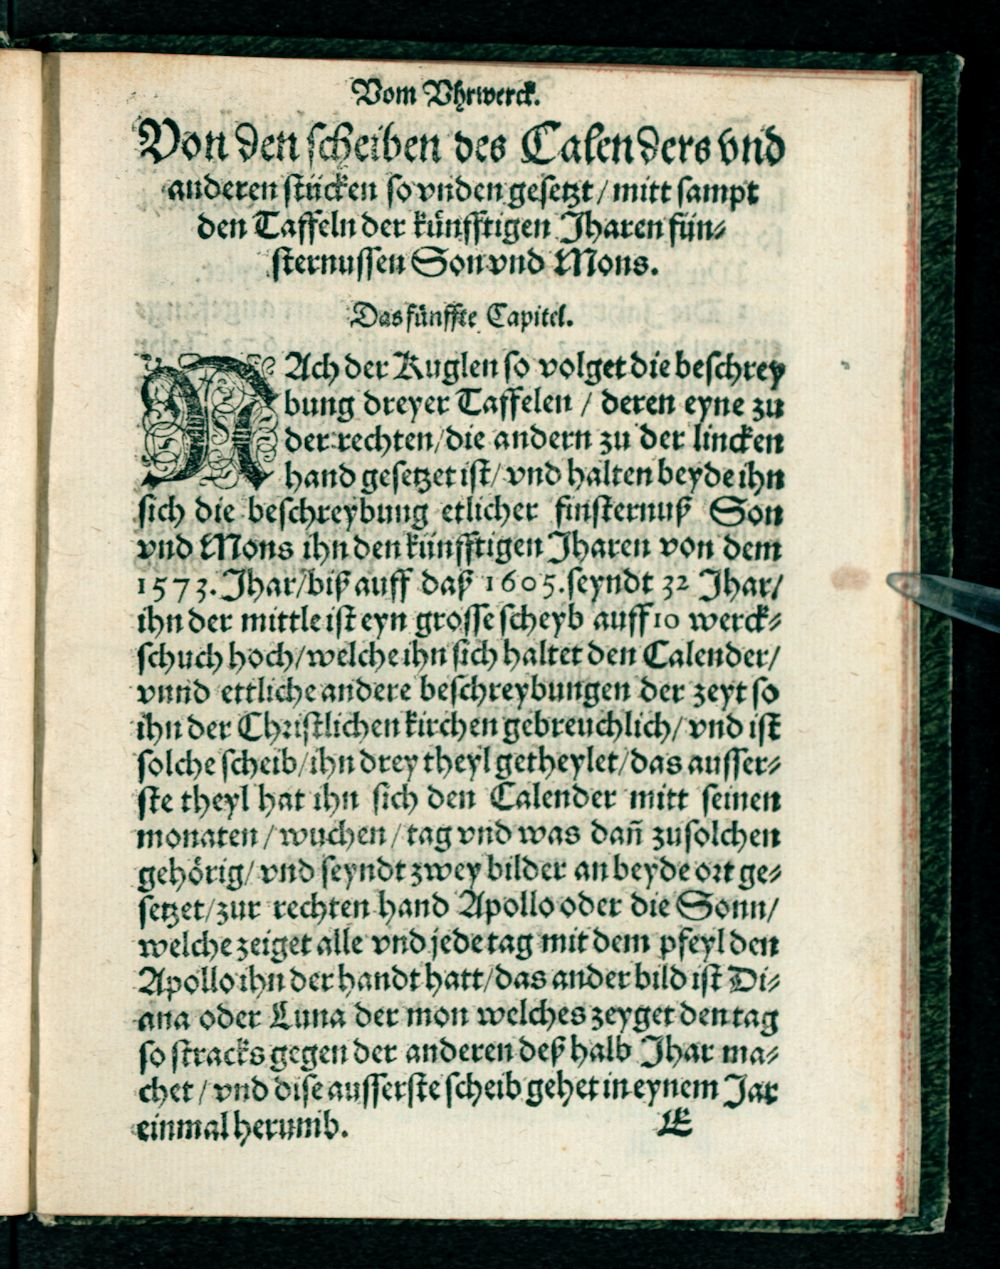 Vom Vhrwerck.
Von den scheiben des Calenders vnd
anderen stücken so vnden gesetzt / mitt sampt
den Taffeln der künfftigen Jharen fün⸗
sternussen Son vnd Mons.
Das fünffte Capitel.
NAch der Kuglen so volget die beschrey
bung dreyer Taffelen / deren eyne zu
der rechten / die andern zu der lincken
hand gesetzet ist / vnd halten beyde ihn
sich die beschreybung etlicher finsternuß Son
vnd Mons ihn den künfftigen Jharen von dem
1573. Jhar / biß auff daß 1605. seyndt 32 Jhar /
ihn der mittle ist eyn grosse scheyb auff 10 werck⸗
schuch hoch / welche ihn sich haltet den Calender /
vnnd ettliche andere beschreybungen der zeyt so
ihn der Christlichen kirchen gebreuchlich / vnd ist
solche scheib / ihn drey theyl getheylet / das ausser⸗
ste theyl hat ihn sich den Calender mitt seinen
monaten / wuchen / tag vnd was dañ zusolchen
gehörig / vnd seyndt zwey bilder an beyde ort ge⸗
setzet / zur rechten hand Apollo oder die Sonn /
welche zeiget alle vnd jede tag mit dem pfeyl den
Apollo ihn der handt hatt / das ander bild ist Di⸗
ana oder Luna der mon welches zeyget den tag
so stracks gegen der anderen deß halb Jhar ma⸗
chet / vnd dise ausserste scheib gehet in eynem Jar
einmal herumb.
E